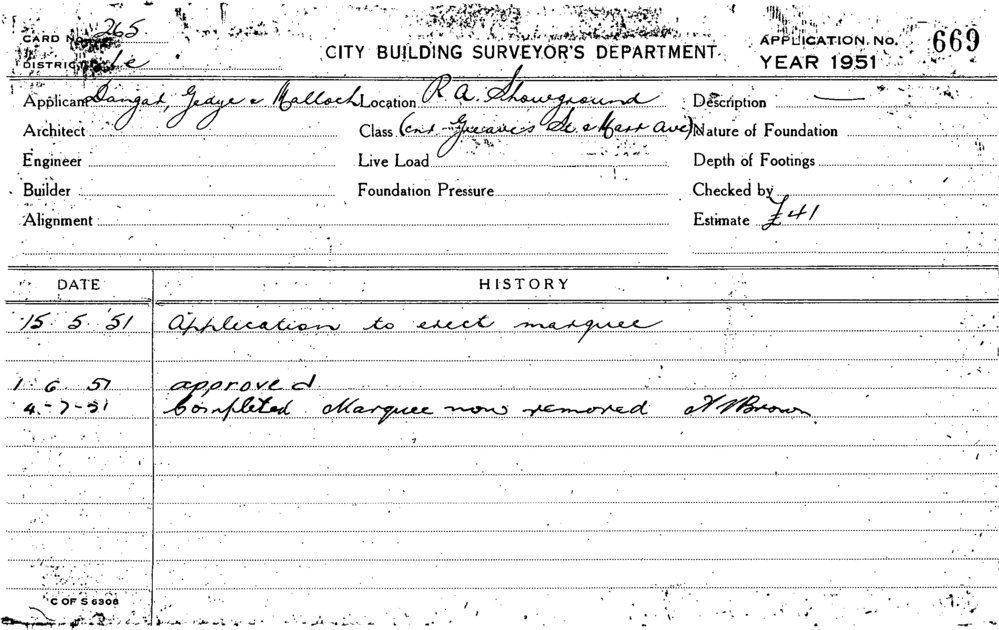 CARD No. 265
DISTRICT 1c
CITY BUILDING SURVEYOR'S DEPARTMENT.
APPLICATION. No. 669
YEAR 1951
Applicant Dangar, Gedye & Malloch Location R A. Showground Description —
Architect Class (cnr Greaves St & Marr Ave) Nature of Foundation
Engineer Live Load Depth of Footings
Builder Foundation Pressure Checked by
Alignment Estimate £41
DATE HISTORY
15. 5. 51 Application to erect marquee
1. 6. 51 approved
4-7-51 Completed. Marquee now removed Brown
C OF S 6308